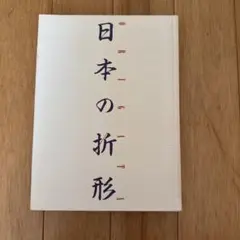 日本の折形